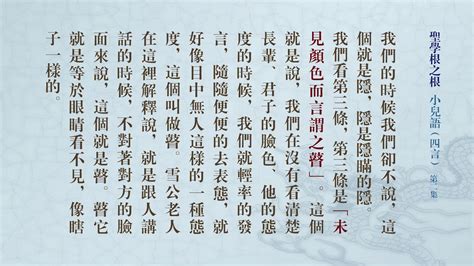 聖學根之根 小兒語(四言) 第 集
我們的時候我們卻不說，這
個就是隱，隱是隱瞞的隱。
我們看第三條，第三條是「未
見顏色而言謂之瞽」。這個
就是說，我們在沒有看清楚
長輩、君子的臉色、他的態
度的時候，我們就輕率的發
言，隨隨便便的去表態，就
好像目中無人這樣的一種態
度，這個叫做瞽。雪公老人
在這裡解釋說，就是跟人講
話的時候，不對著對方的臉
面來說，這個就是瞽。瞽它
就是等於眼睛看不見，像瞎
子一樣的。